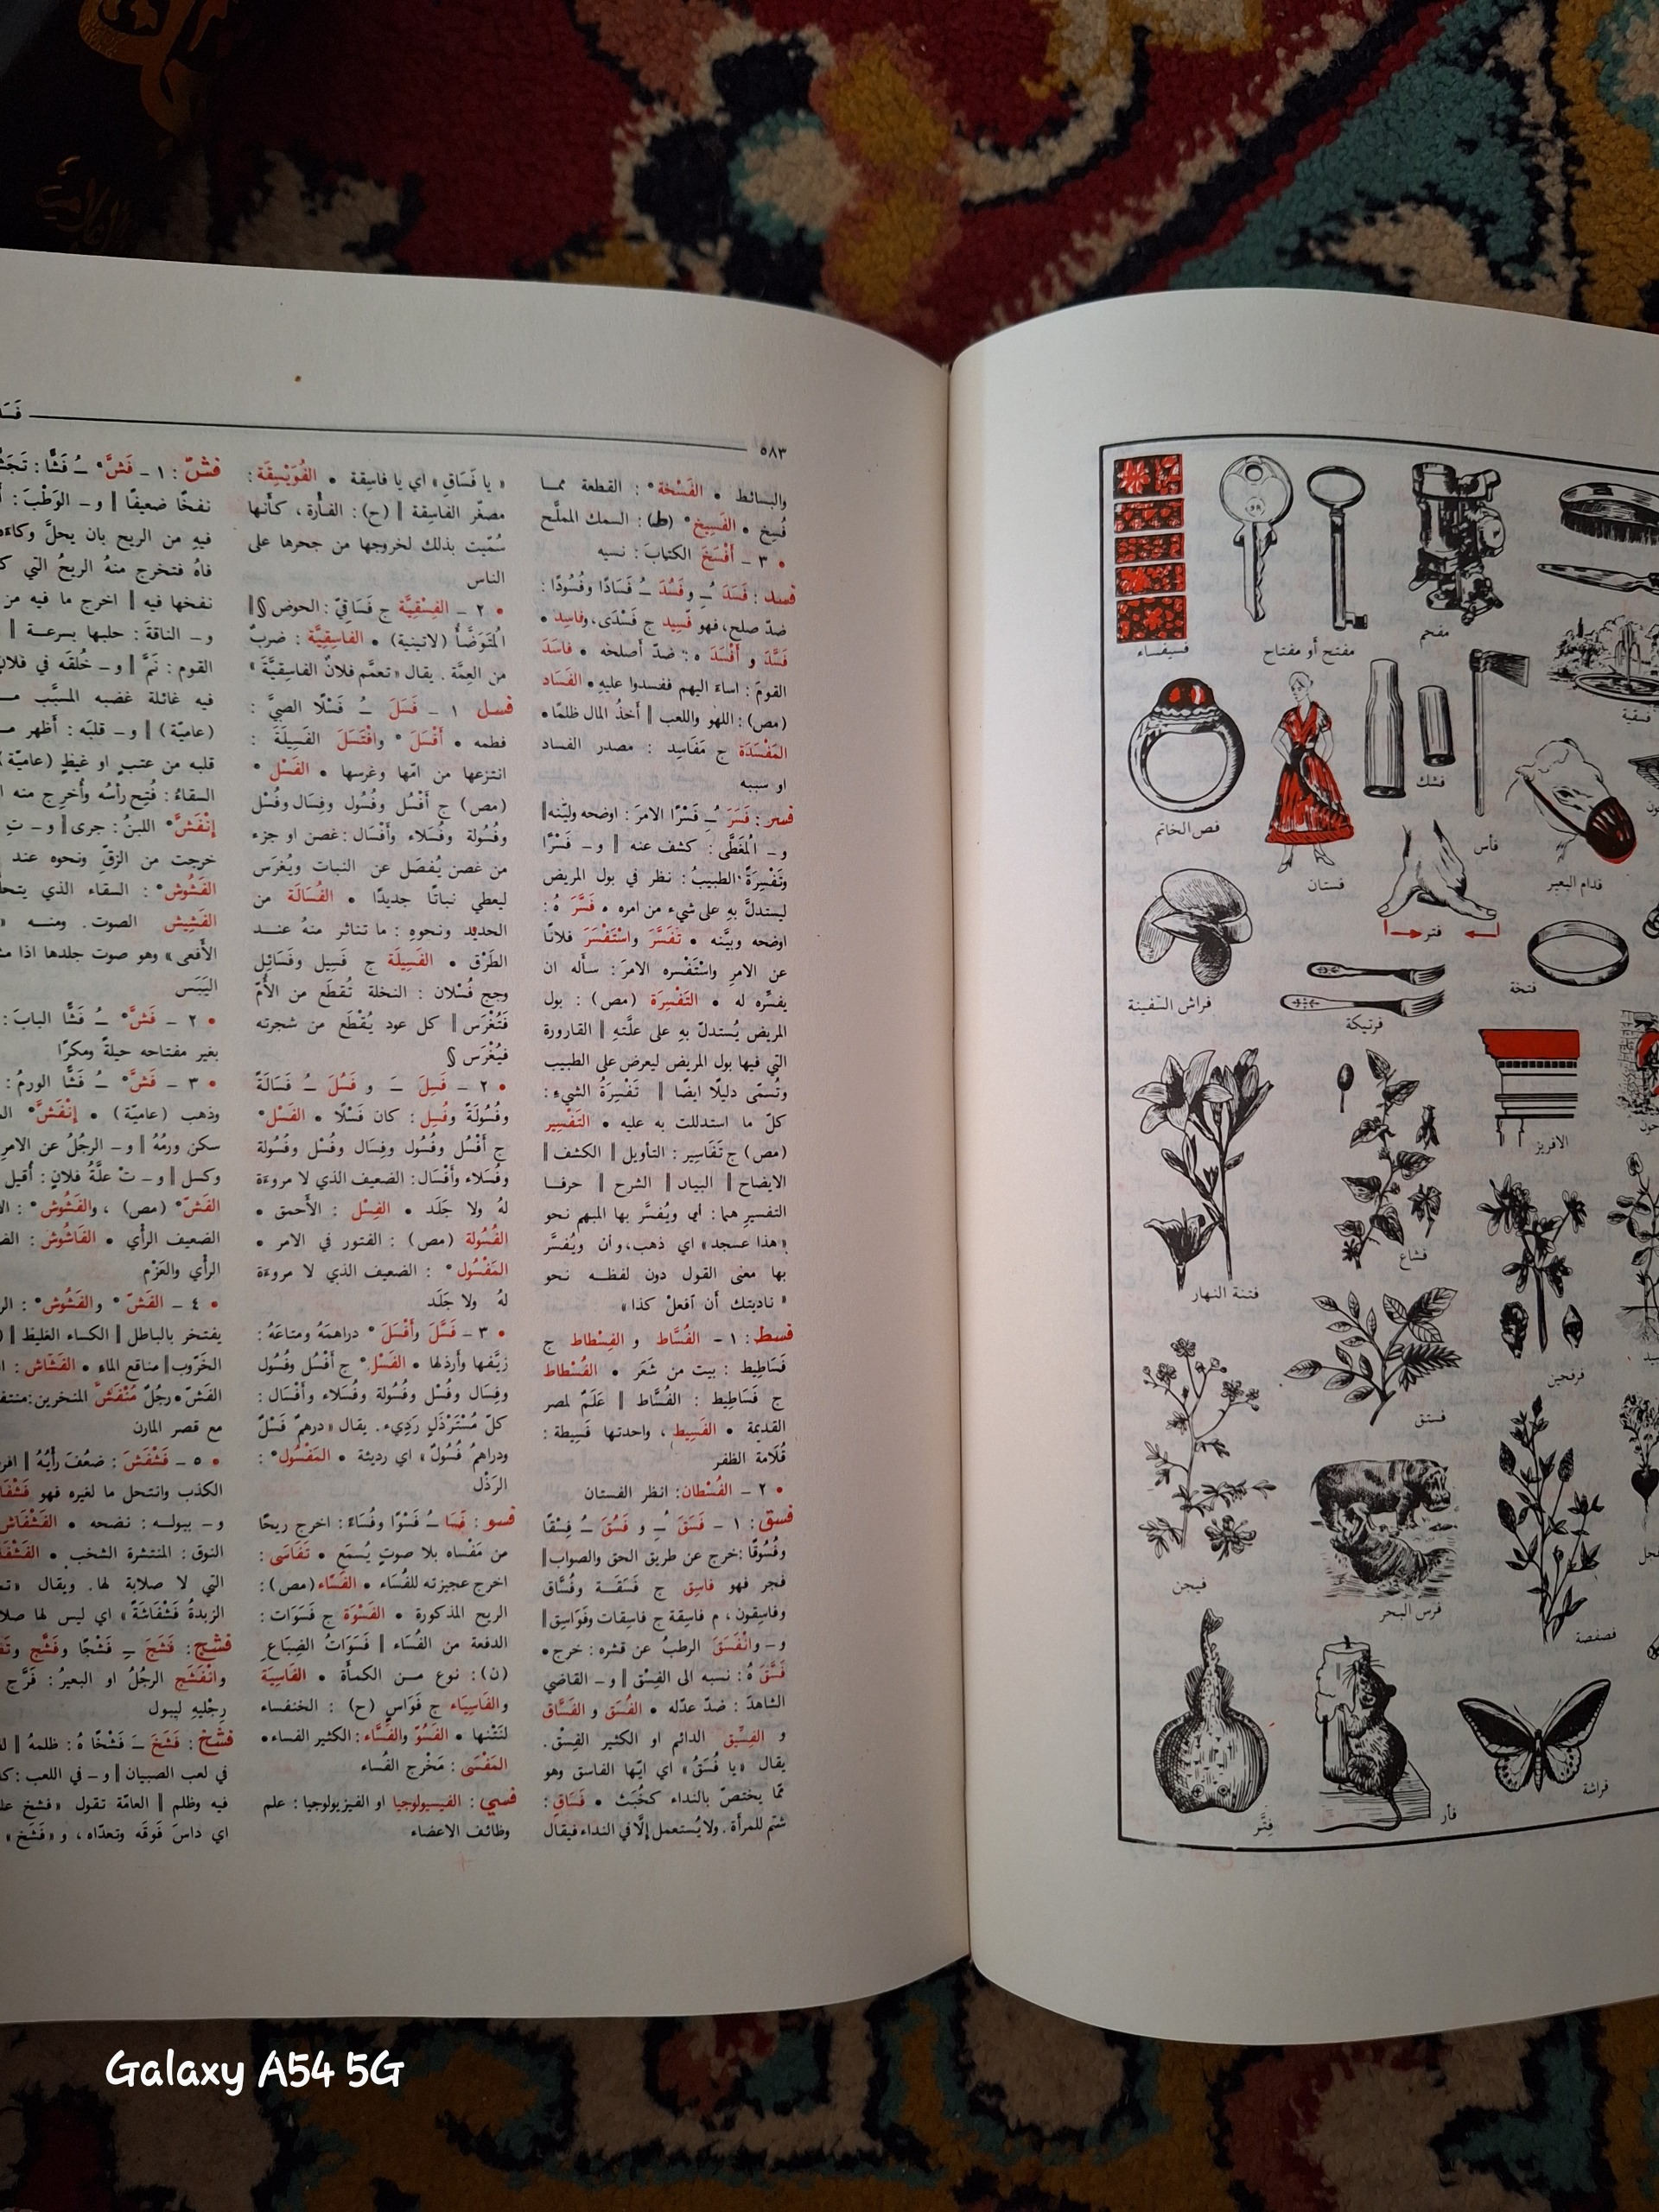 ٥٨٣
والبسائط • الفَسْخة° : القطعة مما
فُسِخ • الفَسِيخ° (ط): السمك المملَّح
• ٣ ــ أَفْسَخَ الكتابَ : نسيه
فسد : فَسَدَ ـُِ وفَسُدَ ـُ فَسَادًا وفُسُودًا :
ضدّ صلح، فهو فَسِيد ج فَسْدَى، وفاسِد •
فَسَّدَ و أَفْسَدَ ه : ضدّ أصلحه • فاسَدَ
القومَ : اساءَ اليهم ففسدوا عليهِ • الفَسَاد
(مص) : اللهو واللعب ‖ أَخذُ المال ظلمًا •
المَفْسَدَة ج مَفَاسِد : مصدر الفساد
او سببه
فسر : فَسَرَ ـُِ فَسْرًا الامرَ : اوضحه وبيَّنه ‖
و ــ المُغَطَّى : كشف عنه ‖ و ــ فَسْرًا
وتَفْسِرَةً الطبيبُ : نظر في بول المريض
ليستدلَّ بهِ على شيء من امره • فَسَّرَ هُ :
اوضحه وبيَّنه • تَفَسَّرَ واسْتَفْسَرَ فلانًا
عن الامرِ واسْتَفْسره الامرَ : سأَله ان
يفسِّره له • التَفْسِرَة (مص) : بول
المريض يُستدلّ بهِ على علَّتهِ ‖ القارورة
التي فيها بول المريض ليعرض على الطبيب
وتُسمّى دليلًا ايضًا ‖ تَفْسِرَةُ الشيءِ :
كلّ ما استدللت به عليه • التَفْسِير
(مص) ج تَفَاسِير : التأويل ‖ الكشف ‖
الايضاح ‖ البيان ‖ الشرح ‖ حرفا
التفسيرِ هما : أي ويُفسَّر بها المبهم نحو
«هذا عسجد» اي ذهب، و أن ويُفسَّر
بها معنى القول دون لفظه نحو
«ناديتك أن آفعلْ كذا»
فسط : ١ ــ الفُسَّاط و الفِسْطاط ج
فَسَاطِيط : بيت من شَعَر • الفُسْطاط
ج فَسَاطِيط : الفُسَّاط ‖ عَلَمٌ لمصر
القديمة • الفَسِيط ، واحدتها فَسِيطة :
قُلَامة الظفر
• ٢ ــ الفُسْطان : انظر الفستان
فسق : ١ ــ فَسَقَ ـُِ و فَسُقَ ـُ فِسْقًا
وفُسُوقًا : خرج عن طريق الحق والصواب ‖
فجر فهو فاسِق ج فَسَقَة وفُسَّاق
وفاسِقون ، م فاسِقة ج فاسِقات وفَوَاسِق ‖
و ــ وانْفَسَقَ الرطبُ عن قشره : خرج •
فَسَّقَ هُ : نسبه الى الفِسْق ‖ و ــ القاضي
الشاهدَ : ضدّ عدّله • الفُسَق و الفَسَّاق
و الفِسِّيق الدائم او الكثير الفِسْق .
يقال «يا فُسَقُ» اي ايّها الفاسق وهو
ممّا يختصّ بالنداء كخُبَث • فَسَاقِ :
شتم للمرأة . ولا يُستعمل إلَّا في النداء فيقال
« يا فَسَاقِ » اي يا فاسِقة • الفُوَيْسِقَة :
مصغّر الفاسِقة ‖ (ح) : الفأرة ، كأَنها
سُمّيت بذلك لخروجها من جحرها على
الناس
• ٢ ــ الفِسْقِيَّة ج فَسَاقِيّ : الحوض § ‖
المُتَوَضَّأُ (لاتينية) • الفاسِقِيَّة : ضربٌ
من العِمَّة . يقال «تعمَّم فلانٌ الفاسِقيَّةَ»
فسل ١ ــ فَسَلَ ـُ فَسْلًا الصبيَّ :
فطمه • أَفْسَلَ° وافْتَسَلَ الفَسِيلَةَ :
انتزعها من امّها وغرسها • الفَسْل°
(مص) ج أَفْسُل وفُسُول وفِسَال وفُسْل
وفُسُولة وفُسَلاء وأَفْسَال : غصن او جزء
من غصن يُفصَل عن النبات ويُغرَس
ليعطي نباتًا جديدًا • الفُسَالَة من
الحديد ونحوِهِ : ما تناثر منهُ عند
الطَرْق • الفَسِيلَة ج فَسِيل وفَسَائِل
وجج فُسْلان : النخلة تُقطَع من الأُمّ
فَتُغْرَس ‖ كل عود يُقْطَع من شجرته
فيُغْرَس §
• ٢ ــ فَسِلَ ـَ و فَسُلَ ـُ فَسَالَةً
وفُسُولَةً وفُسِل : كان فَسْلًا • الفَسْل°
ج أَفْسُل وفُسُول وفِسَال وفُسْل وفُسُولة
وفُسَلاء وأَفْسَال : الضعيف الذي لا مروءة
لهُ ولا جَلَد • الفِسْل : الأَحمق •
الفُسُولة (مص) : الفتور في الامر •
المَفْسُول° : الضعيف الذي لا مروءة
لهُ ولا جَلَد
• ٣ ــ فَسَّلَ وأَفْسَلَ° دراهمَهُ ومتاعَهُ :
زيَّفها وأَرذلها • الفَسْل° ج أَفْسُل وفُسُول
وفِسَال وفُسْل وفُسُولة وفُسَلاء وأَفْسَال :
كلّ مُسْتَرْذَلٍ رَدِيء . يقال «درهمٌ فَسْلٌ
ودراهمُ فُسُولٌ» اي رديئة • المَفْسُول° :
الرَذْل
فسو : فَسَا ـُ فَسْوًا وفُسَاءً : اخرج ريحًا
من مَفْساه بلا صوتٍ يُسمَع • تَفَاسَى :
اخرج عجيزته للفُسَاء • الفُسَاء (مص) :
الريح المذكورة • الفَسْوَة ج فَسَوَات :
الدفعة من الفُسَاء ‖ فَسَوَاتُ الضِبَاع
(ن) : نوع من الكمأَة • الفَاسِيَة
والفَاسِيَاء ج فَوَاسٍ (ح) : الخنفساء
لنَتْنها • الفَسُوّ والفَسَّاء : الكثير الفساء •
المَفْسَى : مَخْرج الفُساء
فسي : الفيسيولوجيا او الفيزيولوجيا : علم
وظائف الاعضاء
فشّ : ١ ــ فَشَّ° ـُ فَشًّا :
نفخًا ضعيفًا ‖ و ــ الوَطْبَ :
فيهِ من الريح بان يحلَّ وكاءَه
فاهُ فتخرج منهُ الريحُ التي
نفخها فيه ‖ اخرج ما فيه من
و ــ الناقةَ : حلبها بسرعة ‖
القوم : نَمَّ ‖ و ــ خُلقَه في فلان
فيه غائلة غضبه المسبَّب
(عاميّة) ‖ و ــ قلبَه : أَظهر
قلبه من عتبٍ او غيظٍ (عاميّة)
السقاءُ : فُتِح رأسُه وأُخرِج منه
إِنْفَشَّ° اللبنُ : جرى ‖ و ــ تِ
خرجت من الزقّ ونحوه عند
الفَشُوش° : السقاء الذي
الفَشِيش الصوت . ومنه
الأَفعى» وهو صوت جلدها اذا
اليَبَس
• ٢ ــ فَشَّ° ـُ فَشًّا البابَ :
بغير مفتاحه حيلةً ومكرًا
• ٣ ــ فَشَّ° ـُ فَشًّا الورمُ :
وذهب (عاميّة) • إِنْفَشَّ°
سكن ورمُهُ ‖ و ــ الرجُلُ عن الامرِ
وكسل ‖ و ــ تْ علَّةُ فلانٍ :
الفَشّ° (مص) ، والفَشُوش° :
الضعيف الرأْي • الفَاشُوش :
الرأْي والعَزْم
• ٤ ــ الفَشّ° والفَشُوش° :
يفتخر بالباطل ‖ الكساء الغليظ ‖
الخَرّوب ‖ مناقع الماء • الفَشَّاش :
الفَشّ • رجُلٌ مُنْفَشُّ المنخرين :
مع قصر المارن
• ٥ ــ فَشْفَشَ : ضعُفَ رأْيُهُ ‖
الكذب وانتحل ما لغيره فهو
و ــ ببوله : نضحه •
النوق : المنتشرة الشخب •
التي لا صلابة لها . ويقال
الزبدةُ فَشْفَاشَةً» اي ليس لها
فشج : فَشَجَ ـِ فَشْجًا وفَشَّج
وانْفَشَج الرجُلُ او البعيرُ : فَرَّج
رِجْليهِ ليبول
فشخ : فَشَخَ ـَ فَشْخًا هُ : ظلمهُ ‖
في لعب الصبيان ‖ و ــ في اللعب :
فيه وظلم ‖ العامّة تقول «فشخ
اي داسَ فَوقَه وتعدّاه ، و «فَشَخ»
فسيفساء
مفتح أو مفتاح
مفحم
فسقية
فص الخاتم
فستان
فشك
فأس
فدام البعير
فتر
فراش السفينة
فرتيكة
فتخة
الافريز
فتنة النهار
فشاغ
فرفحين
فستق
فيجن
فرس البحر
فصفصة
فتَّر
فأر
فراشة
Galaxy A54 5G